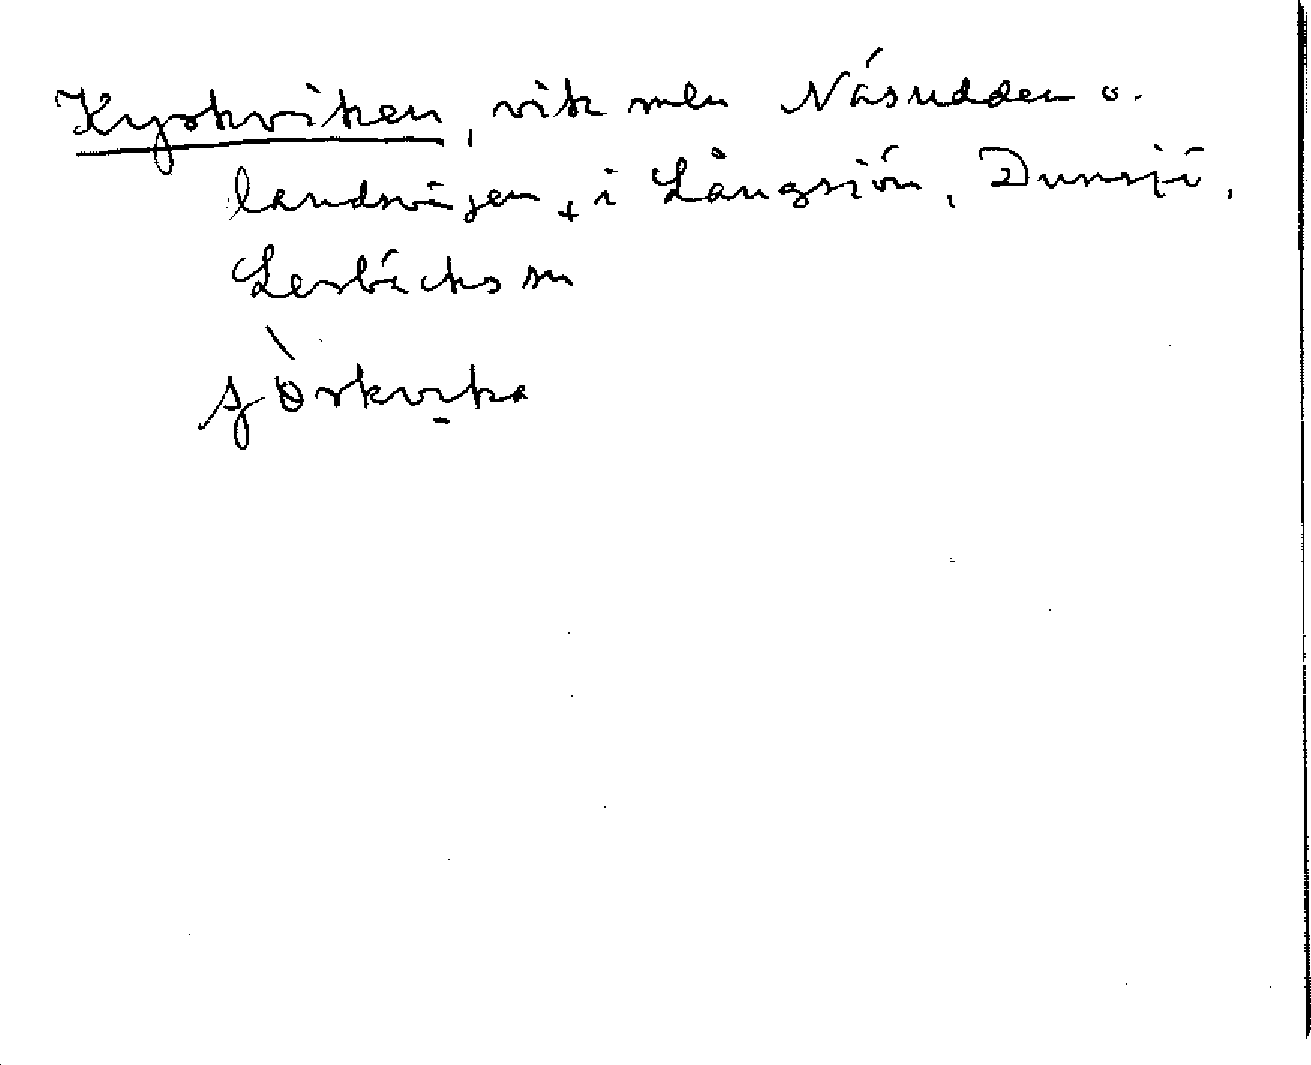 Kyrkviken, vik mln Näsudden o.
landsvägen, i Långsjön, Dunsjö,
Lerbäcks sn